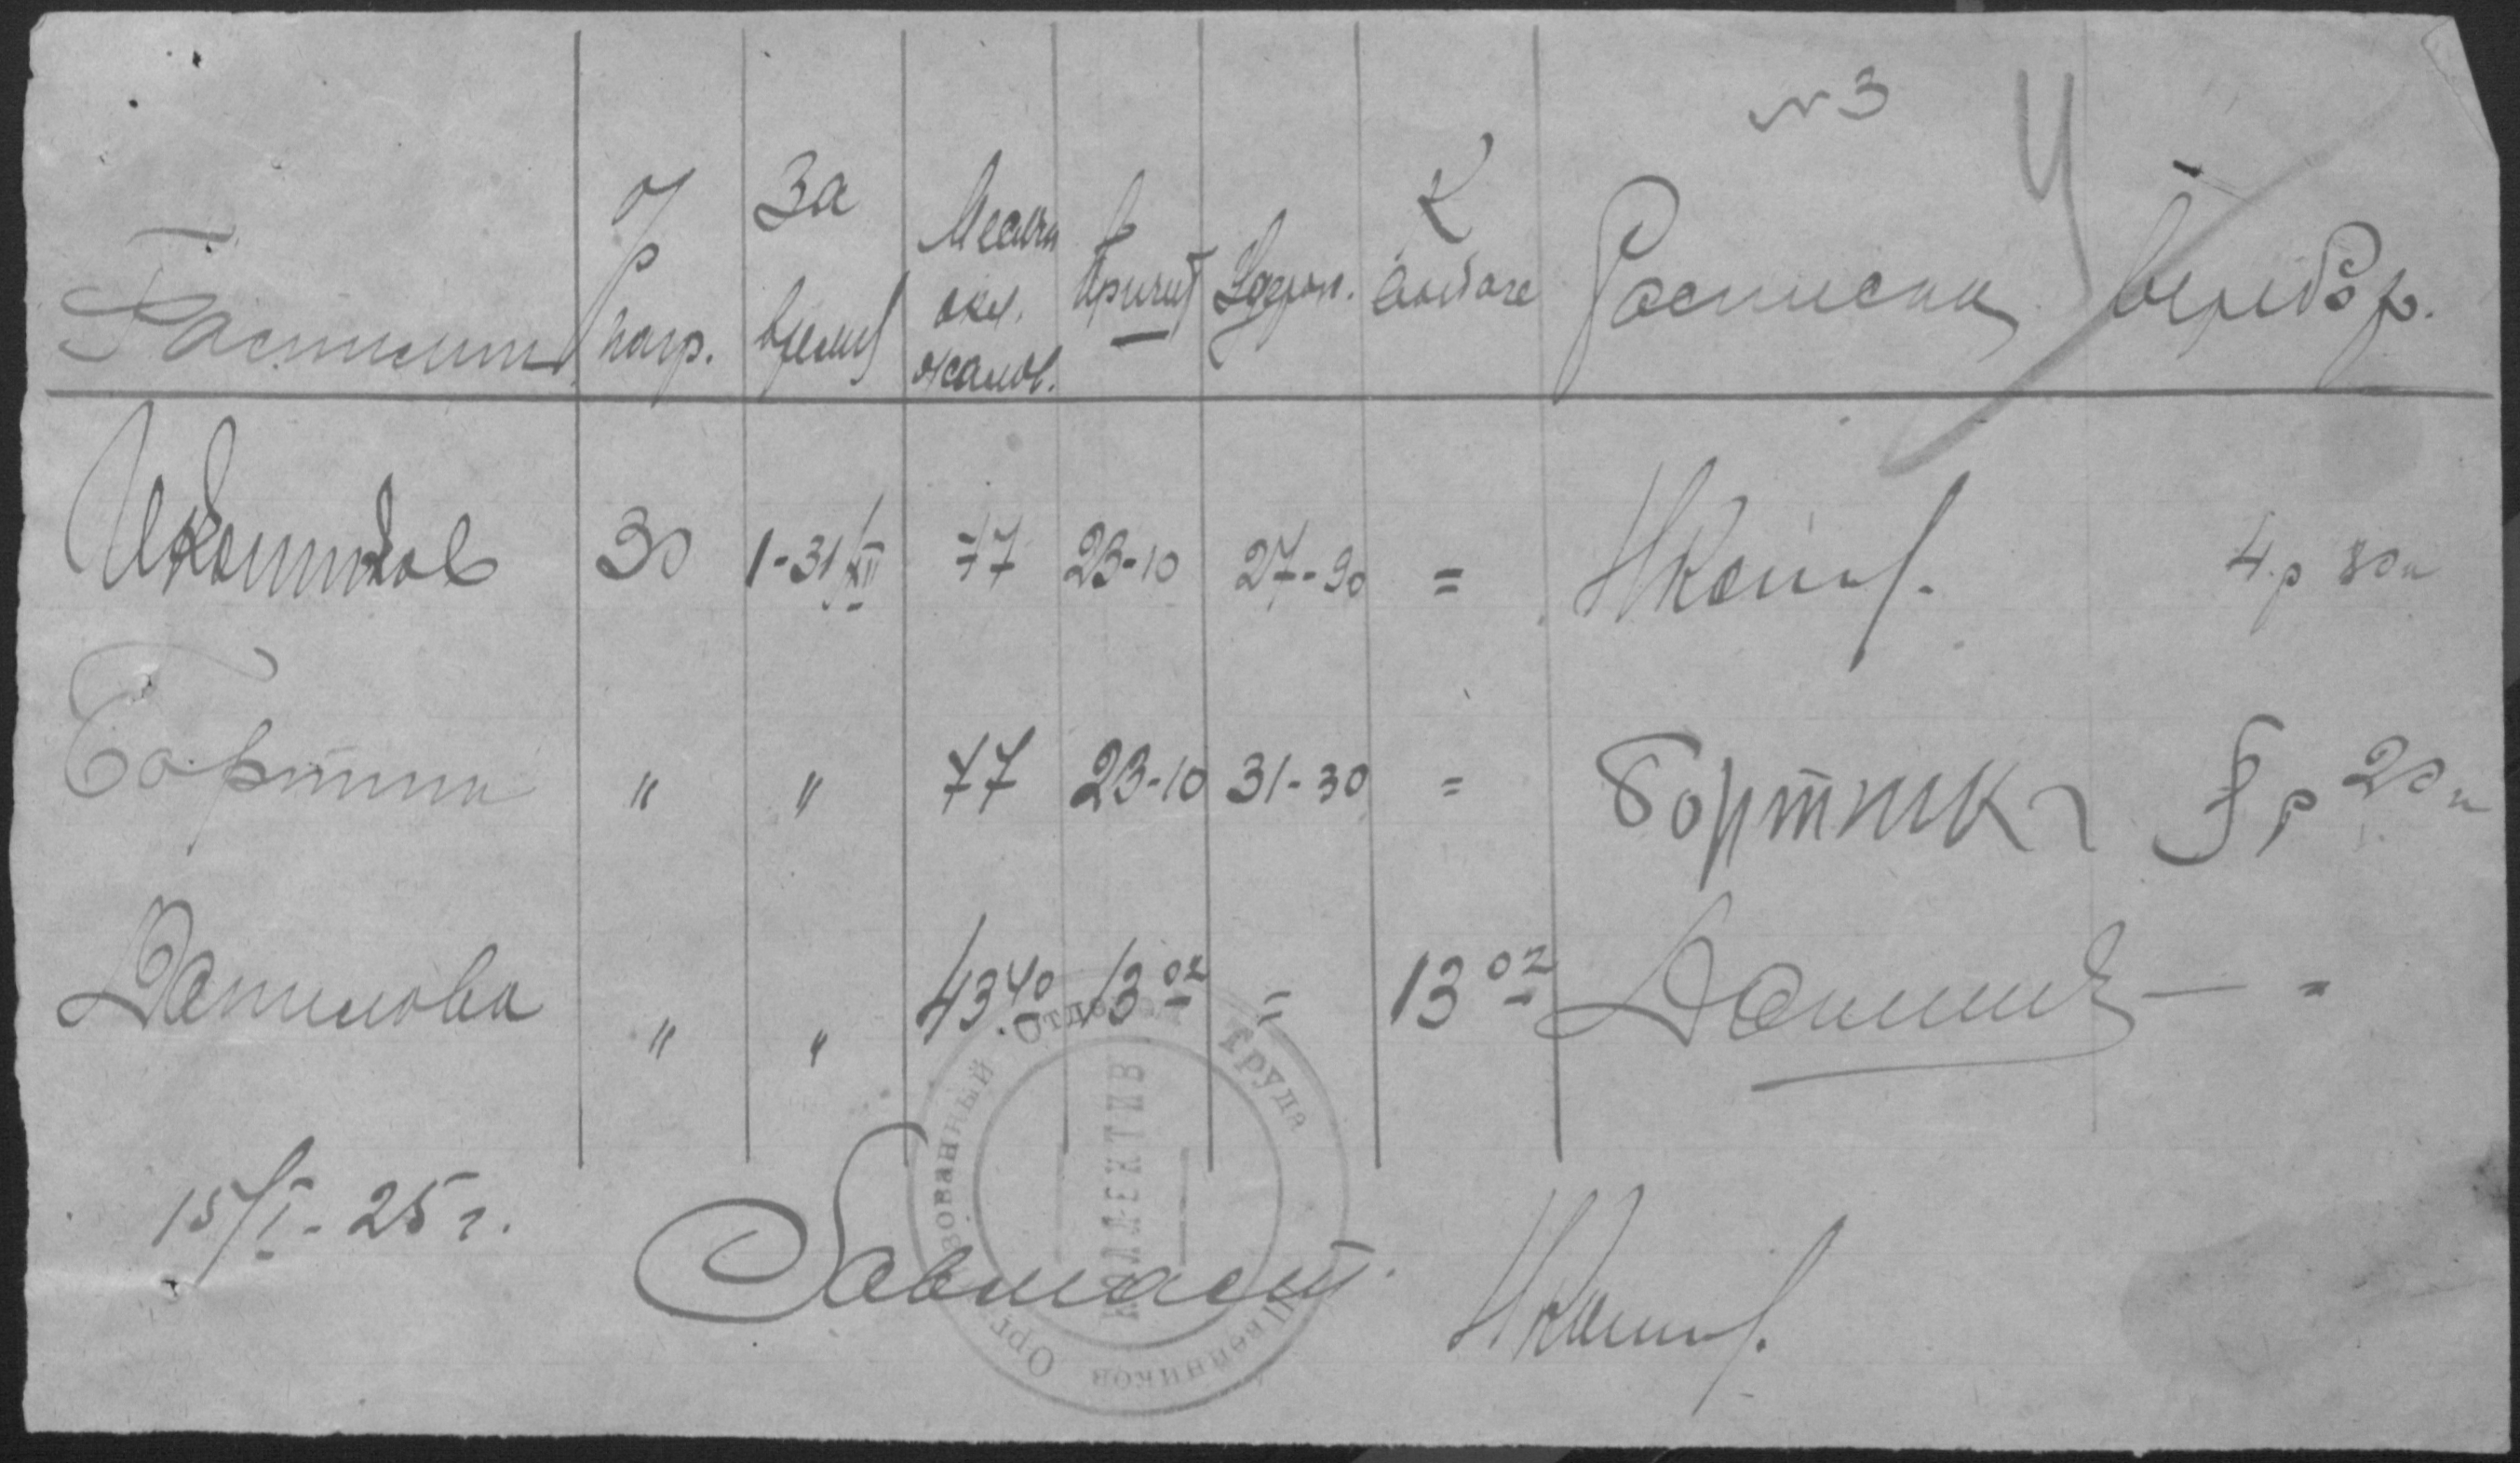 № 3
% нагр. За время Месячн окл. жалов. Причит Удерж. К выдаче Расписка перебор.
Иконников 30 1-31/XII 77 23-10 27-90 = 4 р 80 к
Бортник " " 77 23-10 31-30 = Бортник 8 р 20 к
Данилова " " 43.40 13 02 = 13 02 — =
15/I - 25 г.
Завмаст.
Организованный Отделом Труда
КОЛЛЕКТИВ
Швейников